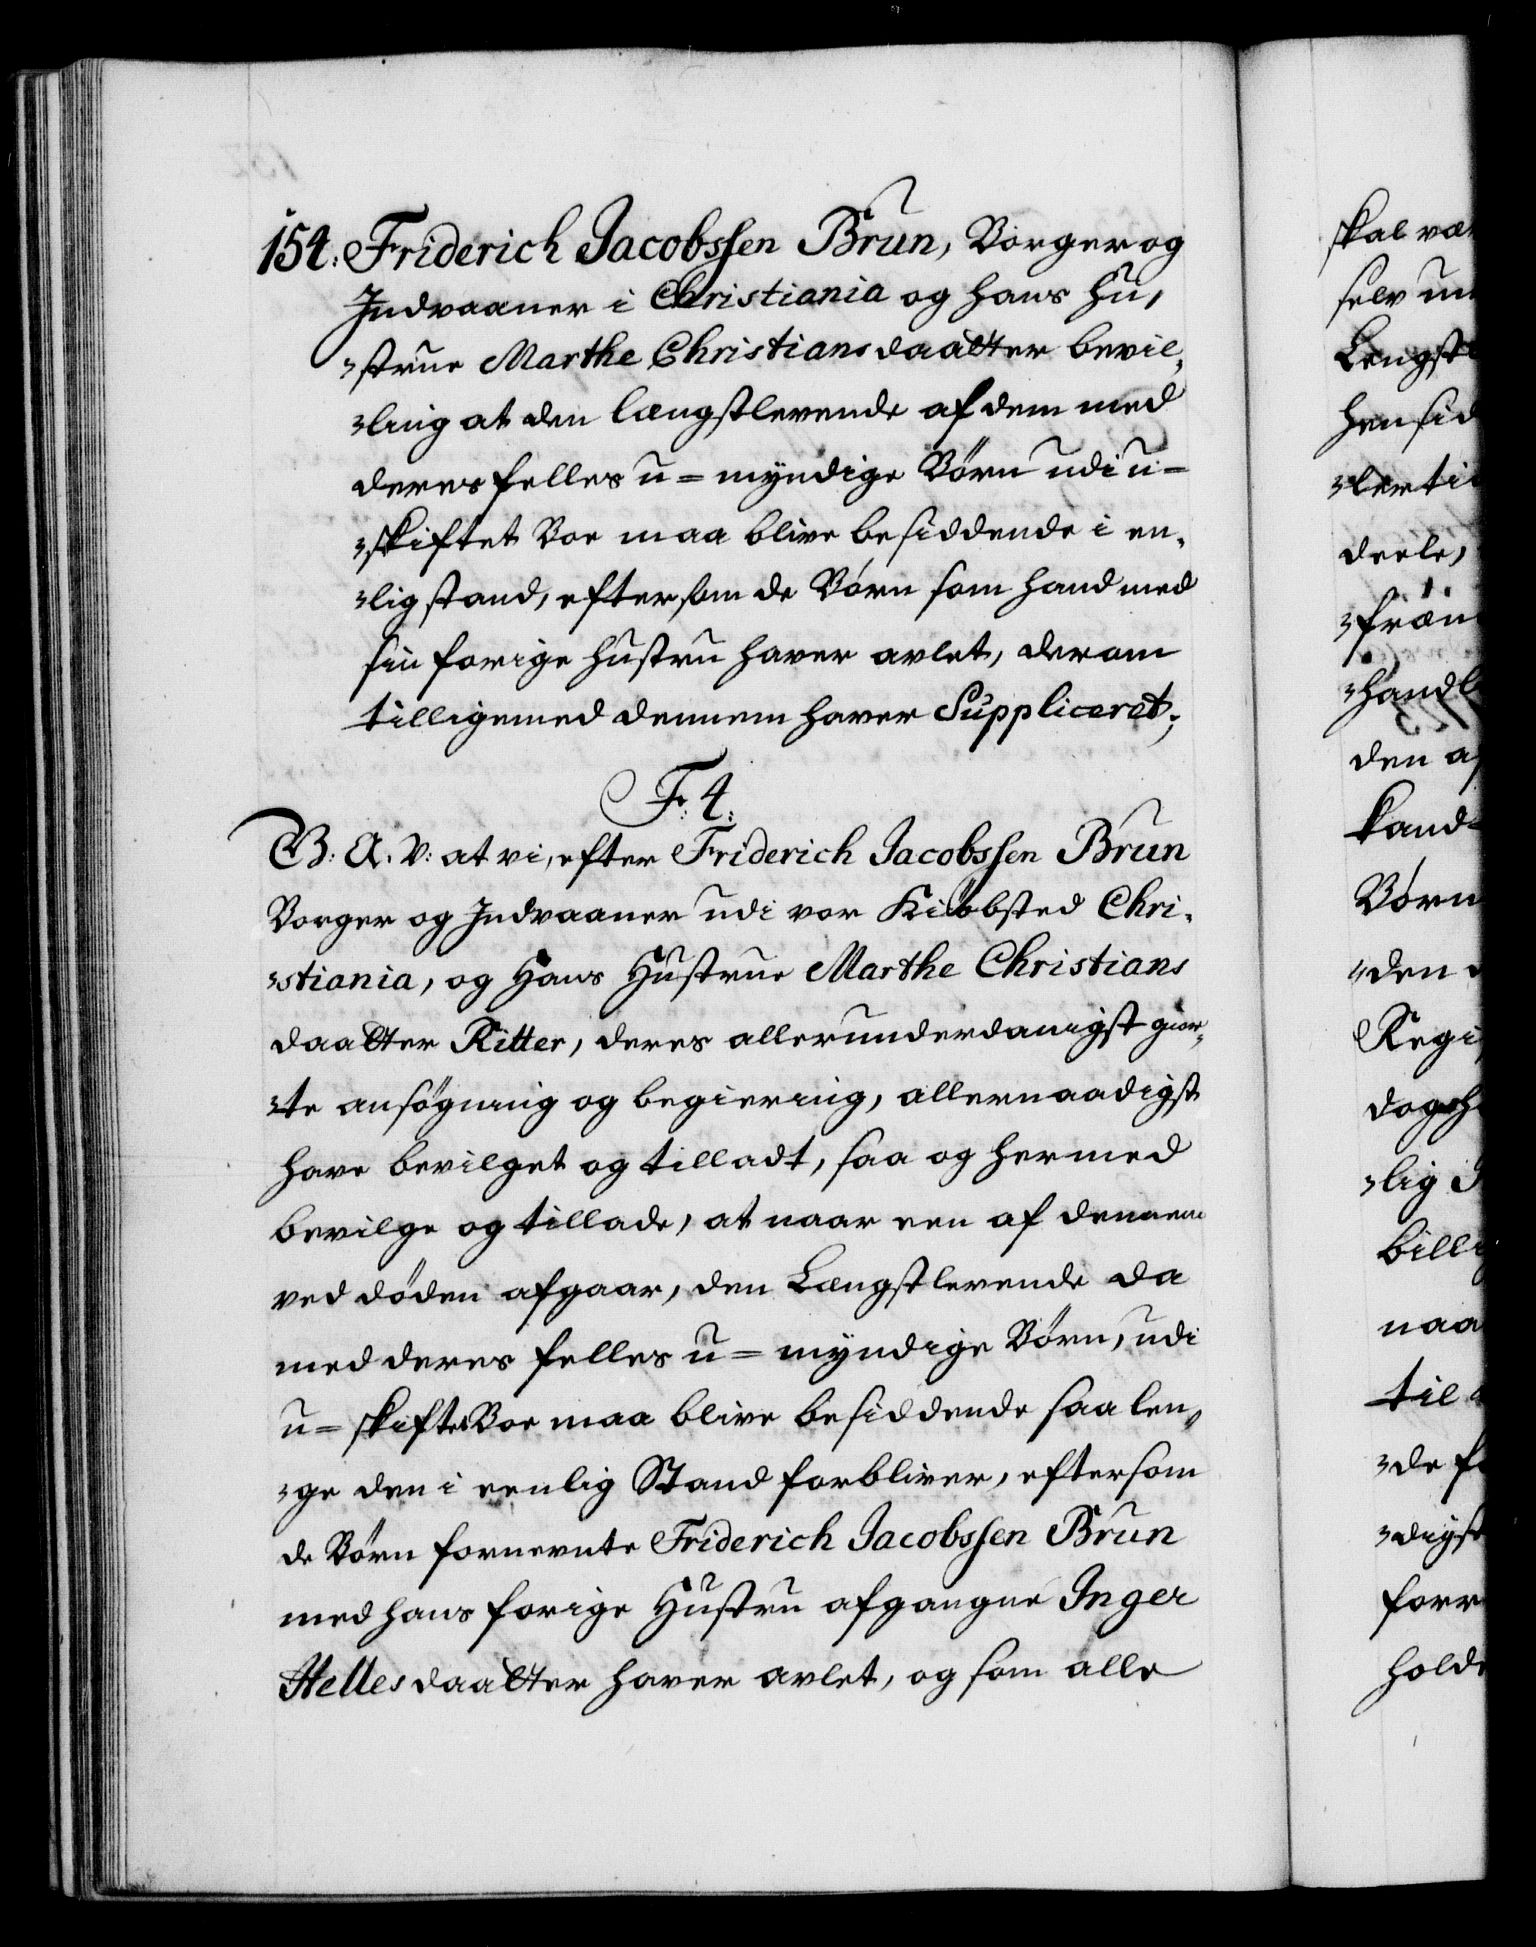 154. Friderich Jacobssen Brun, Borger og
Indvaaner i Christiania og hans Hu-
-strue Marthe Christiansdaatter bevil-
-ling at den længstlevende af dem med
deres felles u-myndige Børn udi u-
-skiftet Boe maa blive besiddende i en-
-lig stand, eftersom de Børn som hand med
sin forige Hustru haver avlet, derom
tilligemed dennem haver Suppliceret;
F. 4.
G: A. V: at vi, efter Friderich Jacobssen Brun
Borger og Indvaaner udi vor Kiöbsted Chri-
-stiania, og Hans Hustrue Marthe Christians
daatter Ritter, deres allerunderdanigst gior-
-te ansögning og begiering, allernaadigst
have bevilget og tilladt, saa og hermed
bevilge og tillade, at naar een af dennem
ved döden afgaar, den Længstlevende da
med deres felles u-myndige Børn, udi
u-skiftet Boe maa blive besiddende saa len-
-ge den i eenlig Stand forbliver, eftersom
de Børn fornevnte Friderich Jacobssen Brun
med hans forige Hustru afgangne Inger
Hellesdaatter haver avlet, og som alle
skal væ
selv
Længstl
hensid
-ler ti
deele,
-handl
den af
kand
Børn
-den
Regi
-lig
billi
naa
til
-de fo
-digst
forr
holde